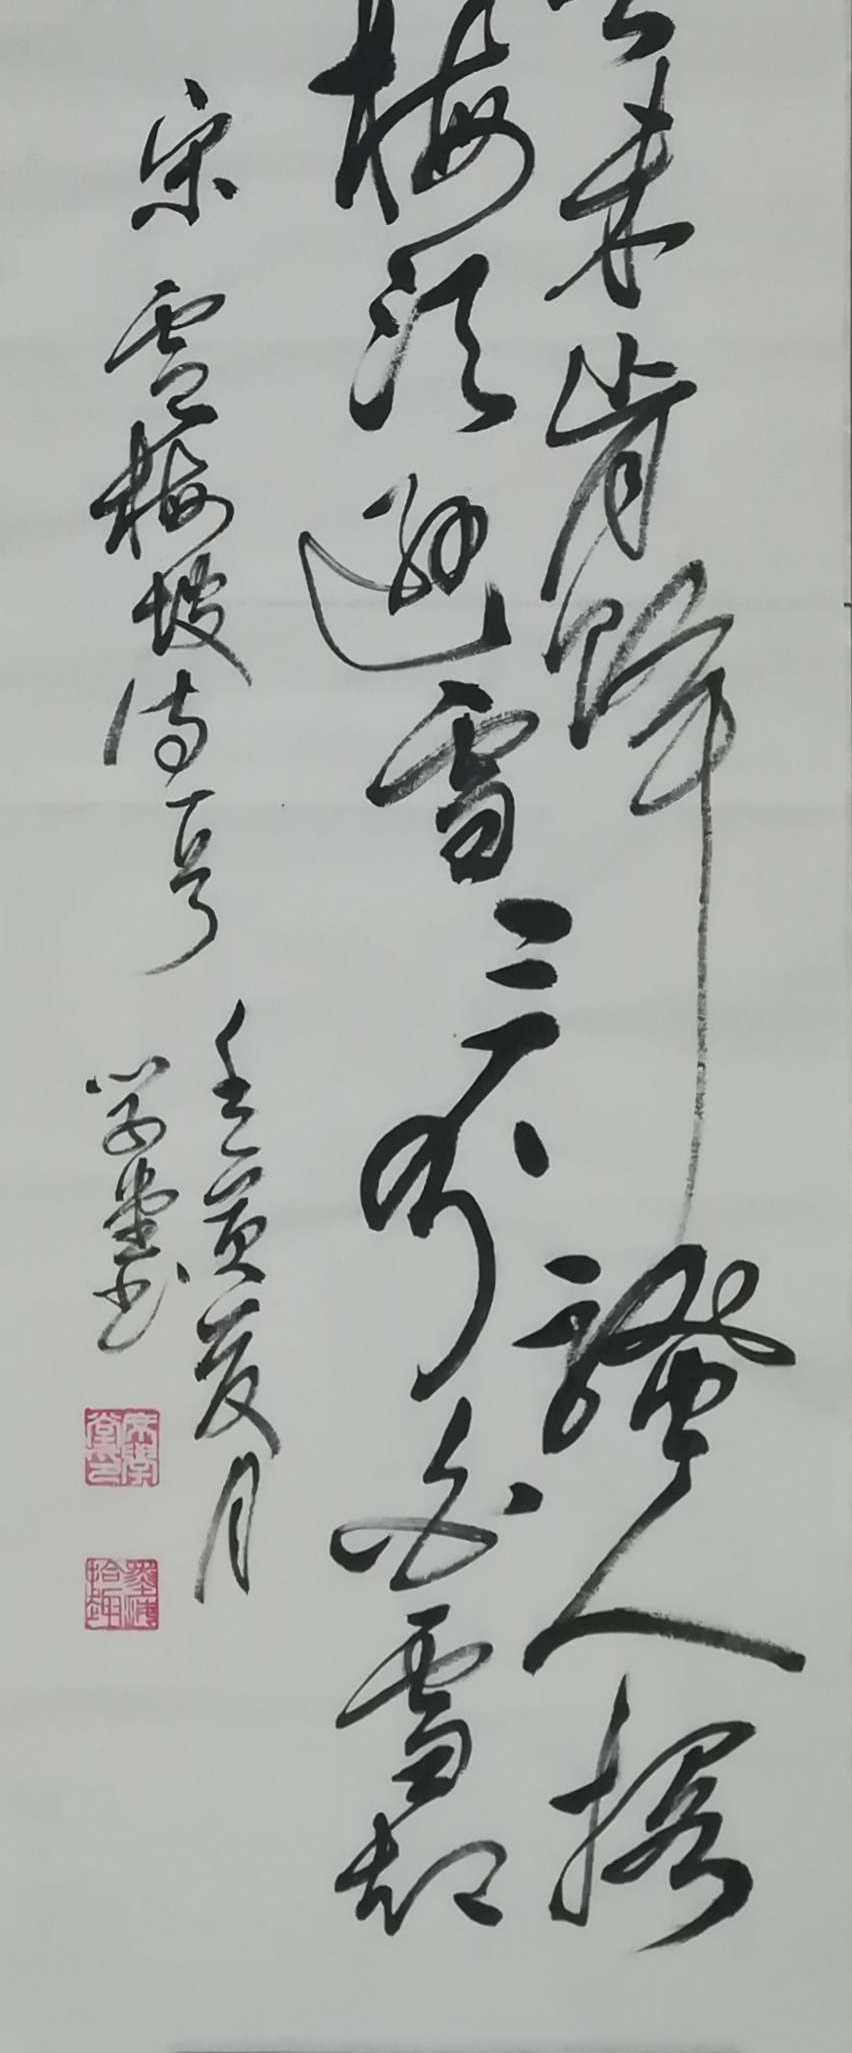 未肯降骚人搁
梅须逊雪三分白雪却
宋卢梅坡诗一首
壬寅夏月
学堂书
墨海拾趣